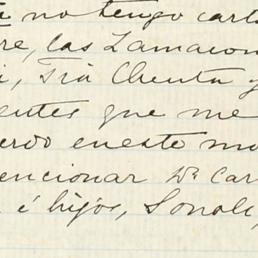 no tengo carta
re, las Zamacona
i, Tia Chenta y
entes que me
erdo eneste mo
encionar Dn Car
é hijos,